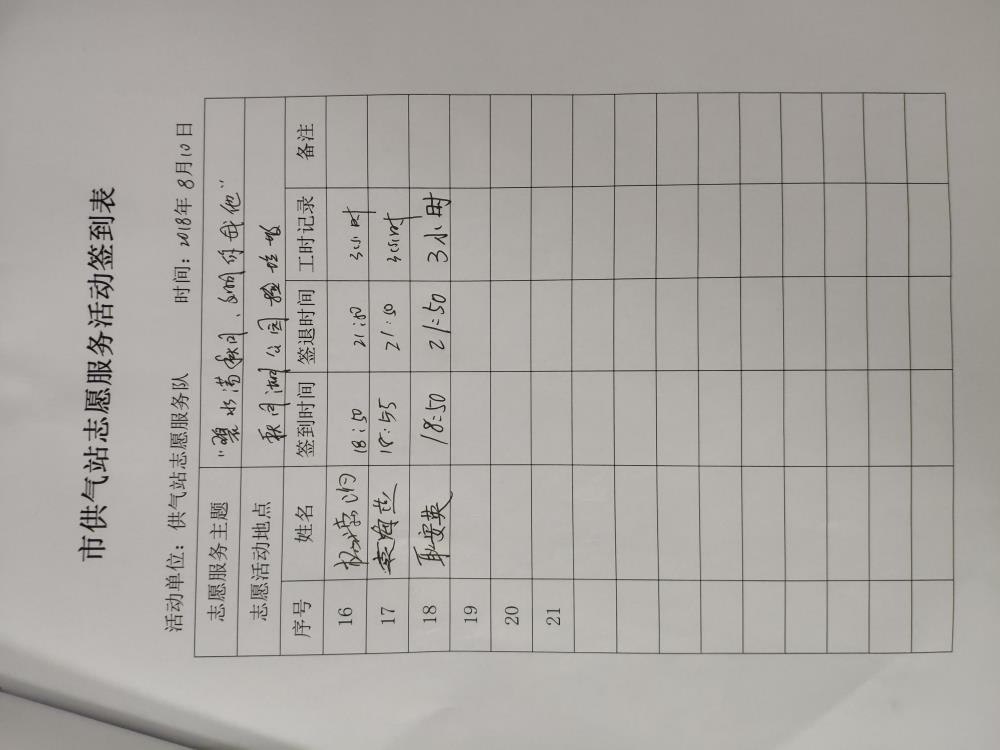 市供气站志愿服务活动签到表
活动单位：供气站志愿服务队 时间：2018年 8月10日
志愿服务主题 "碧水满秋月、文明你我他"
志愿活动地点 秋月湖公园
序号 姓名 签到时间 签退时间 工时记录 备注
16 18:50 21:50 3小时
17 袁海兰 18:55 21:50 3小时
18 耿安英 18:50 21:50 3小时
19
20
21